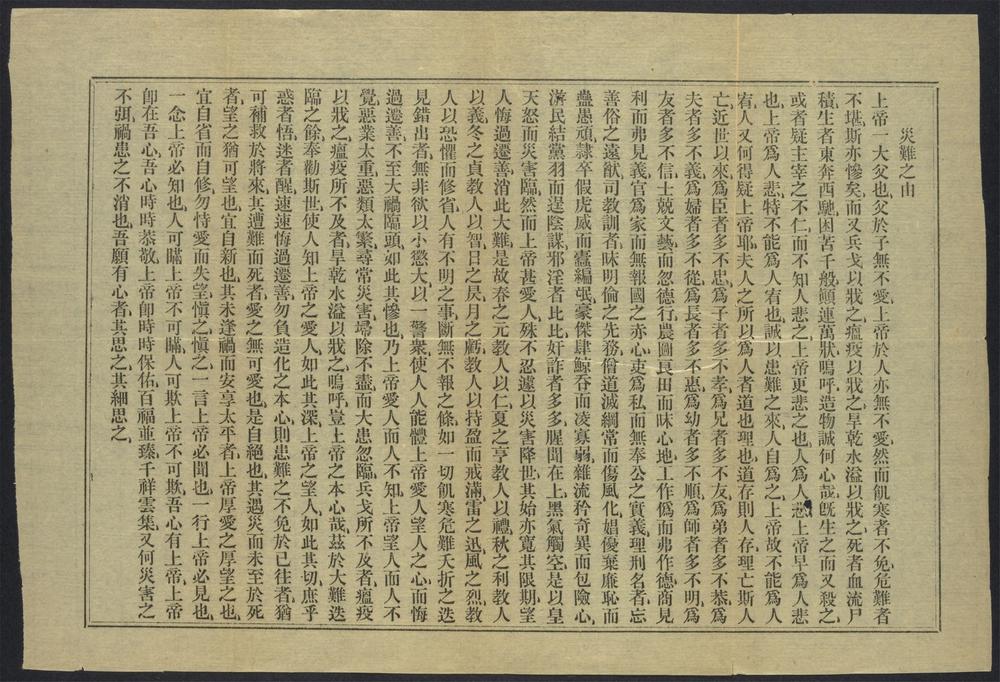 災難之由
上帝一大父也父於子無不愛上帝於人亦無不愛然而飢寒者不免危難者
不堪斯亦慘矣而又兵戈以戕之瘟疫以戕之旱乾水溢以戕之死者血流尸
積生者東奔西馳困苦千般顛連萬狀嗚呼造物誠何心哉旣生之而又殺之
或者疑主宰之不仁而不知人悲之上帝更悲之也人爲人悲上帝早爲人悲
也上帝爲人悲特不能爲人宥也誠以患難之來人自爲之上帝故不能爲人
宥人又何得疑上帝耶夫人之所以爲人者道也理也道存則人存理亡斯人
亡近世以來爲臣者多不忠爲子者多不孝爲兄者多不友爲弟者多不恭爲
夫者多不義爲婦者多不從爲長者多不惠爲幼者多不順爲師者多不明爲
友者多不信士競文藝而忽德行農圖良田而昧心地工作僞而弗作德商見
利而弗見義官爲家而無報國之亦心吏爲私而無奉公之實義理刑名者忘
善俗之遠猷司教訓者昧明倫之先務尙道滅綱常而傷風化娼優棄廉恥而
蠱愚頑隸卒假虎威而蠹編氓豪傑肆鯨吞而凌寡弱雜流矜奇異而包險心
游民結黨羽而逞陰謀邪淫者比比奸詐者多多腥聞在上黑氣觸空是以皇
天怒而災害臨然而上帝甚愛人殊不忍遽以災害降世其始亦寬其限期望
人悔過遷善消此大難是故春之元教人以仁夏之亨教人以禮秋之利教人
以義冬之貞教人以智日之昃月之虧教人以持盈而戒滿雷之迅風之烈教
人以恐懼而修省人有不明之事斷無不報之條如一切飢寒危難夭折之迭
見錯出者無非欲以小懲大以一警衆使人人能體上帝愛人望人之心而悔
過遷善不至大禍臨頭如此其慘也乃上帝愛人而人不知上帝望人而人不
覺惡業太重惡類太繁尋常災害埽除不盡而大患忽臨兵戈所不及者瘟疫
以戕之瘟疫所不及者旱乾水溢以戕之嗚呼豈上帝之本心哉茲於大難迭
臨之餘奉勸斯世使人知上帝之愛人如此其深上帝之望人如此其切庶乎
惑者悟迷者醒速速悔過遷善勿負造化之本心則患難之不免於已往者猶
可補救於將來其遭難而死者愛之無可愛也是自絕也其遇災而未至於死
者望之猶可望也宜自新也其未逢禍而安享太平者上帝厚愛之厚望之也
宜自省而自修勿恃愛而失望愼之愼之一言上帝必聞也一行上帝必見也
一念上帝必知也人可瞞上帝不可瞞人可欺上帝不可欺吾心有上帝上帝
卽在吾心吾心時時恭敬上帝卽時時保佑百福萑臻千祥雲集又何災害之
不弭禍患之不消也吾願有心者其思之其細思之